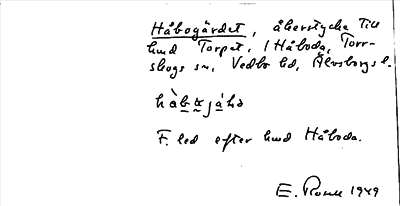 Håbogärdet, åkerstycke till
hmd Torpet, i Håboda, Torr-
skogs sn, Vedbo hd, Älvsborgs l.
F. led efter hmd Håboda.
E. Rosell 1949